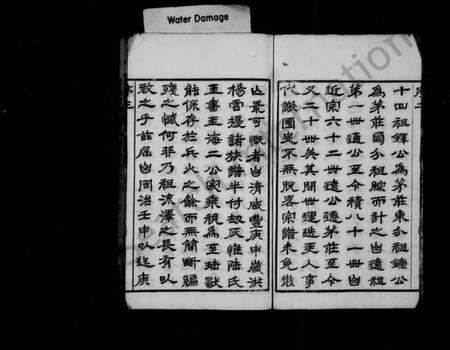 Water Damage
序二
十四祖鐸公為茅莊東分祖鐘公
為茅莊分祖綜而計之自遠祖
第一世遠公至今積八十一世自
近宗六十二世遠公遷茅莊至今
又二十世矣其間世運迭更人事
代謝國史不無脫畧宗譜未免散
亾最可慨者自清咸豐庚申歲洪
楊雲擾諸族譜半付劫灰惟陸氏
玉書玉海二公家乘視為至
能保存於兵火之餘而無簡斷編
殘之憾何非乃祖流澤之長有以
致之乎屆自同治壬申以迄庚
序三